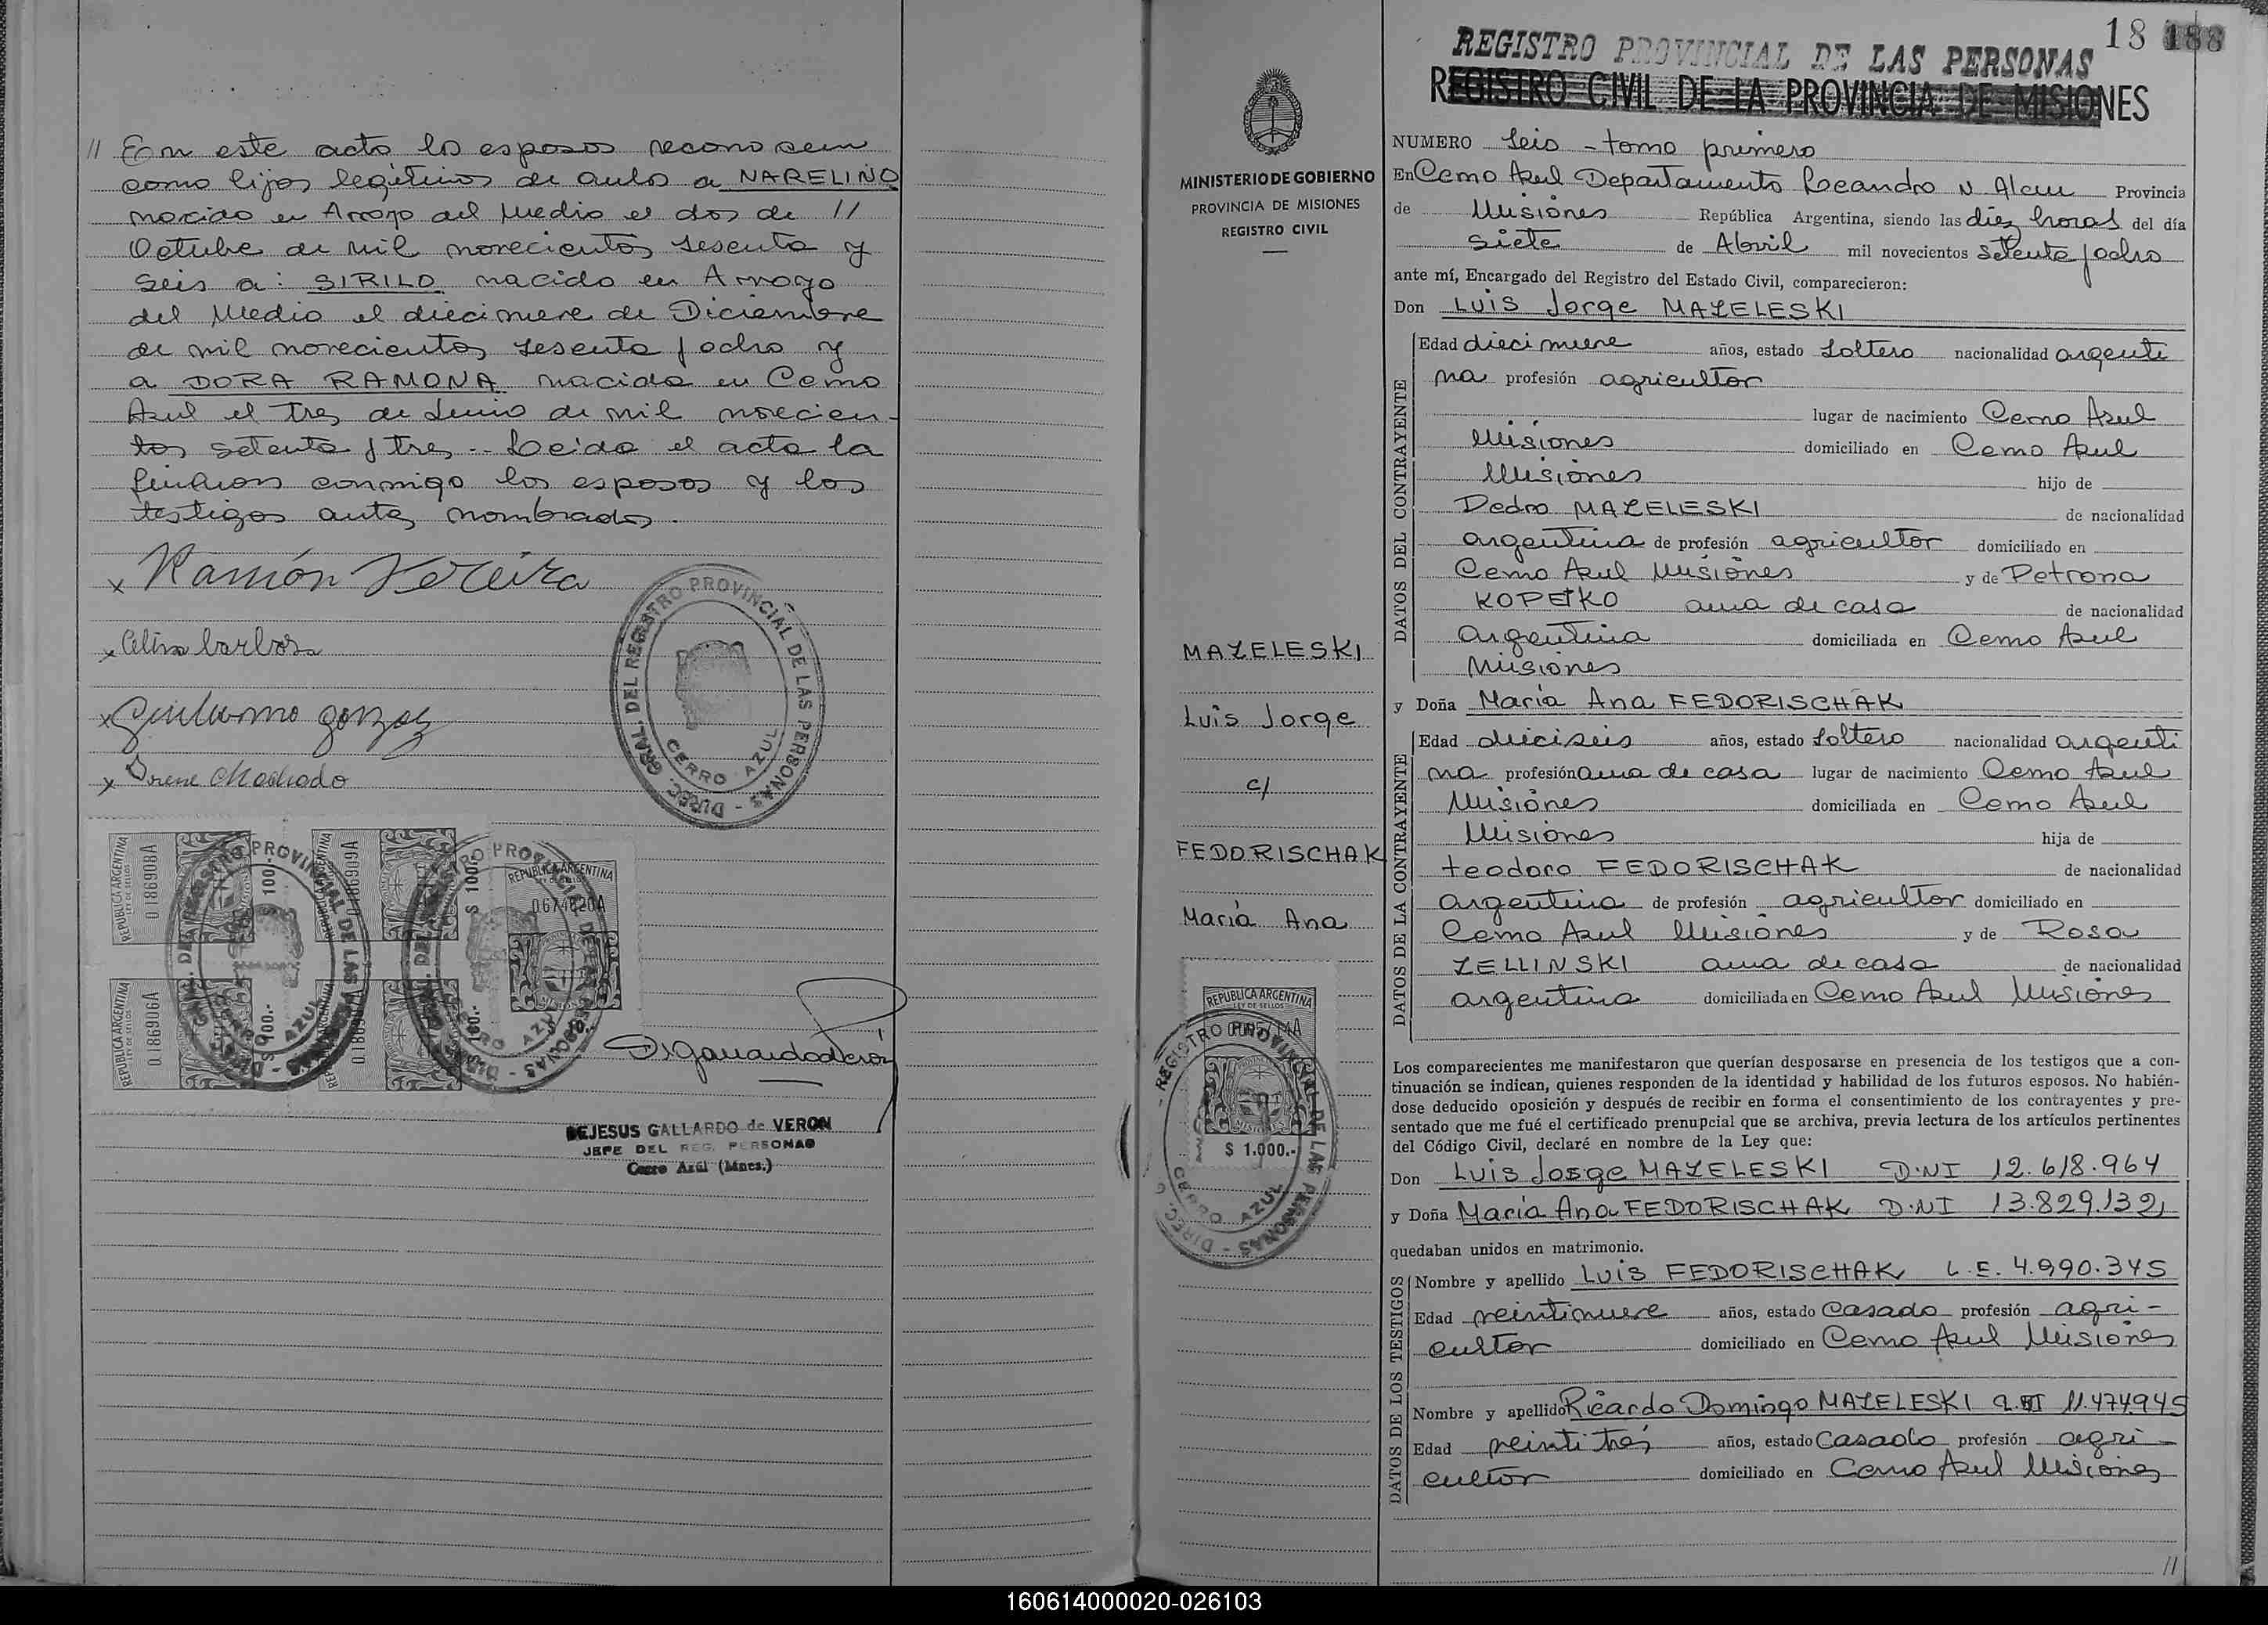 // En este acto los esposos reconosem
como hijos legítimos de autos a NARELINO
nacido en Arroyo del Medio el dos de //
Octubre de mil novecientos sesenta y
seis a: SIRILO nacido en Arroyo
del Medio el diecinueve de Diciembre
de mil novecientos sesenta y ocho y
a DORA RAMONA nacida en Cerro
Azul el tres de Junio de mil novecien-
tos setenta y tres.- Leida el acta la
firman conmigo los esposos y los
testigos antes nombrados.
x Ramón Pereira
x Celina barbosa
x Guillermo gonzalez
x Irene Machado
DIREC. GRAL. DEL REGISTRO PROVINCIAL DE LAS PERSONAS -
CERRO AZUL
REPUBLICA ARGENTINA
0.186908A
0.186909A
0674820A
0.186906A
$ 100.-
DEJESUS GALLARDO de VERON
JEFE DEL REG. PERSONAS
Cerro Azúl (Mnes.)
MINISTERIO DE GOBIERNO
PROVINCIA DE MISIONES
REGISTRO CIVIL
MAZELESKI
Luis Jorge
c/
FEDORISCHAK
María Ana
REPUBLICA ARGENTINA
LEY DE SELLOS
$ 1.000.-
CERRO AZUL
18 188
REGISTRO PROVINCIAL DE LAS PERSONAS
REGISTRO CIVIL DE LA PROVINCIA DE MISIONES
NUMERO Seis - tomo primero
En Cerro Azul Departamento Leandro N. Alem Provincia
de Misiones República Argentina, siendo las diez horas del día
siete de Abril mil novecientos setenta y ocho
ante mí, Encargado del Registro del Estado Civil, comparecieron:
Don Luis Jorge MAZELESKI
DATOS DEL CONTRAYENTE
Edad diecinueve años, estado Soltero nacionalidad argenti
na profesión agricultor
lugar de nacimiento Cerro Azul
Misiones domiciliado en Cerro Azul
Misiones hijo de
Pedro MAZELESKI de nacionalidad
argentina de profesión agricultor domiciliado en
Cerro Azul Misiones y de Petrona
KOPETKO ama de casa de nacionalidad
Argentina domiciliada en Cerro Azul
Misiones
y Doña María Ana FEDORISCHAK
DATOS DE LA CONTRAYENTE
Edad dieciseis años, estado Soltero nacionalidad argenti
na profesión ama de casa lugar de nacimiento Cerro Azul
Misiones domiciliada en Cerro Azul
Misiones hija de
teodoro FEDORISCHAK de nacionalidad
argentina de profesión agricultor domiciliado en
Cerro Azul Misiones y de Rosa
ZELLINSKI ama de casa de nacionalidad
argentina domiciliada en Cerro Azul Misiones
Los comparecientes me manifestaron que querían desposarse en presencia de los testigos que a con-
tinuación se indican, quienes responden de la identidad y habilidad de los futuros esposos. No habién-
dose deducido oposición y después de recibir en forma el consentimiento de los contrayentes y pre-
sentado que me fué el certificado prenupcial que se archiva, previa lectura de los artículos pertinentes
del Código Civil, declaré en nombre de la Ley que:
Don Luis Jorge MAZELESKI D.NI 12.618.964
y Doña María Ana FEDORISCHAK D.NI 13.829.132,
quedaban unidos en matrimonio.
DATOS DE LOS TESTIGOS
Nombre y apellido Luis FEDORISCHAK L.E. 4.990.345
Edad veintinueve años, estado Casado profesión agri-
cultor domiciliado en Cerro Azul Misiones
Nombre y apellido Ricardo Domingo MAZELESKI 11.474945
Edad veintitrés años, estado Casado profesión agri
cultor domiciliado en Cerro Azul Misiones
//
160614000020-026103